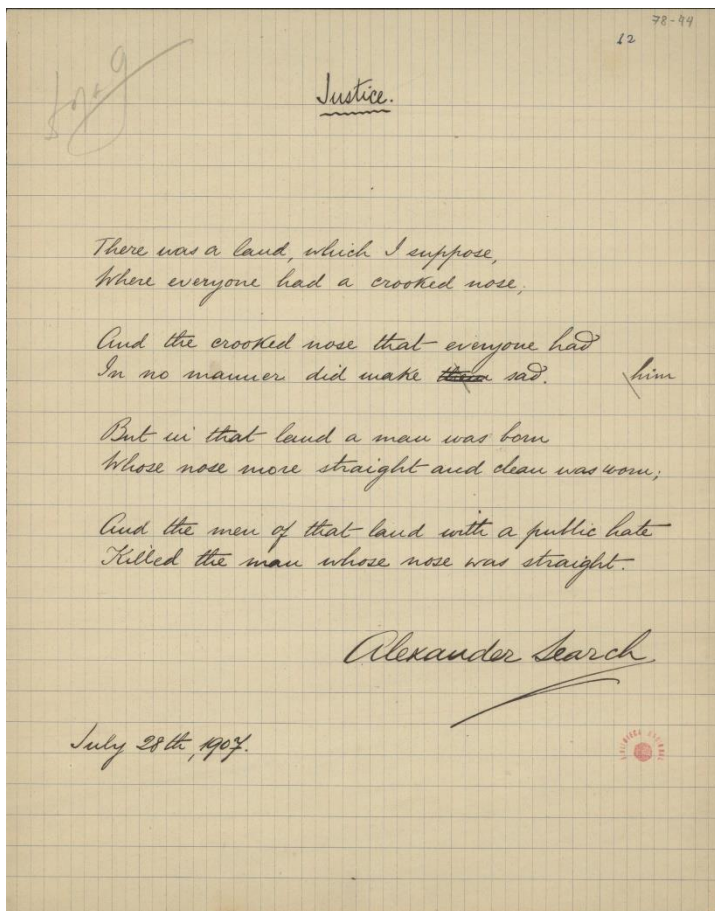 78-44
12
Justice.
There was a land, which I suppose,
Where everyone had a crooked nose;
And the crooked nose that everyone had
In no manner did make them sad. \him
But in that land a man was born
Whose nose more straight and clean was worn;
And the men of that land with a public hate
Killed the man whose nose was straight.
Alexander Search
July 28th, 1907.